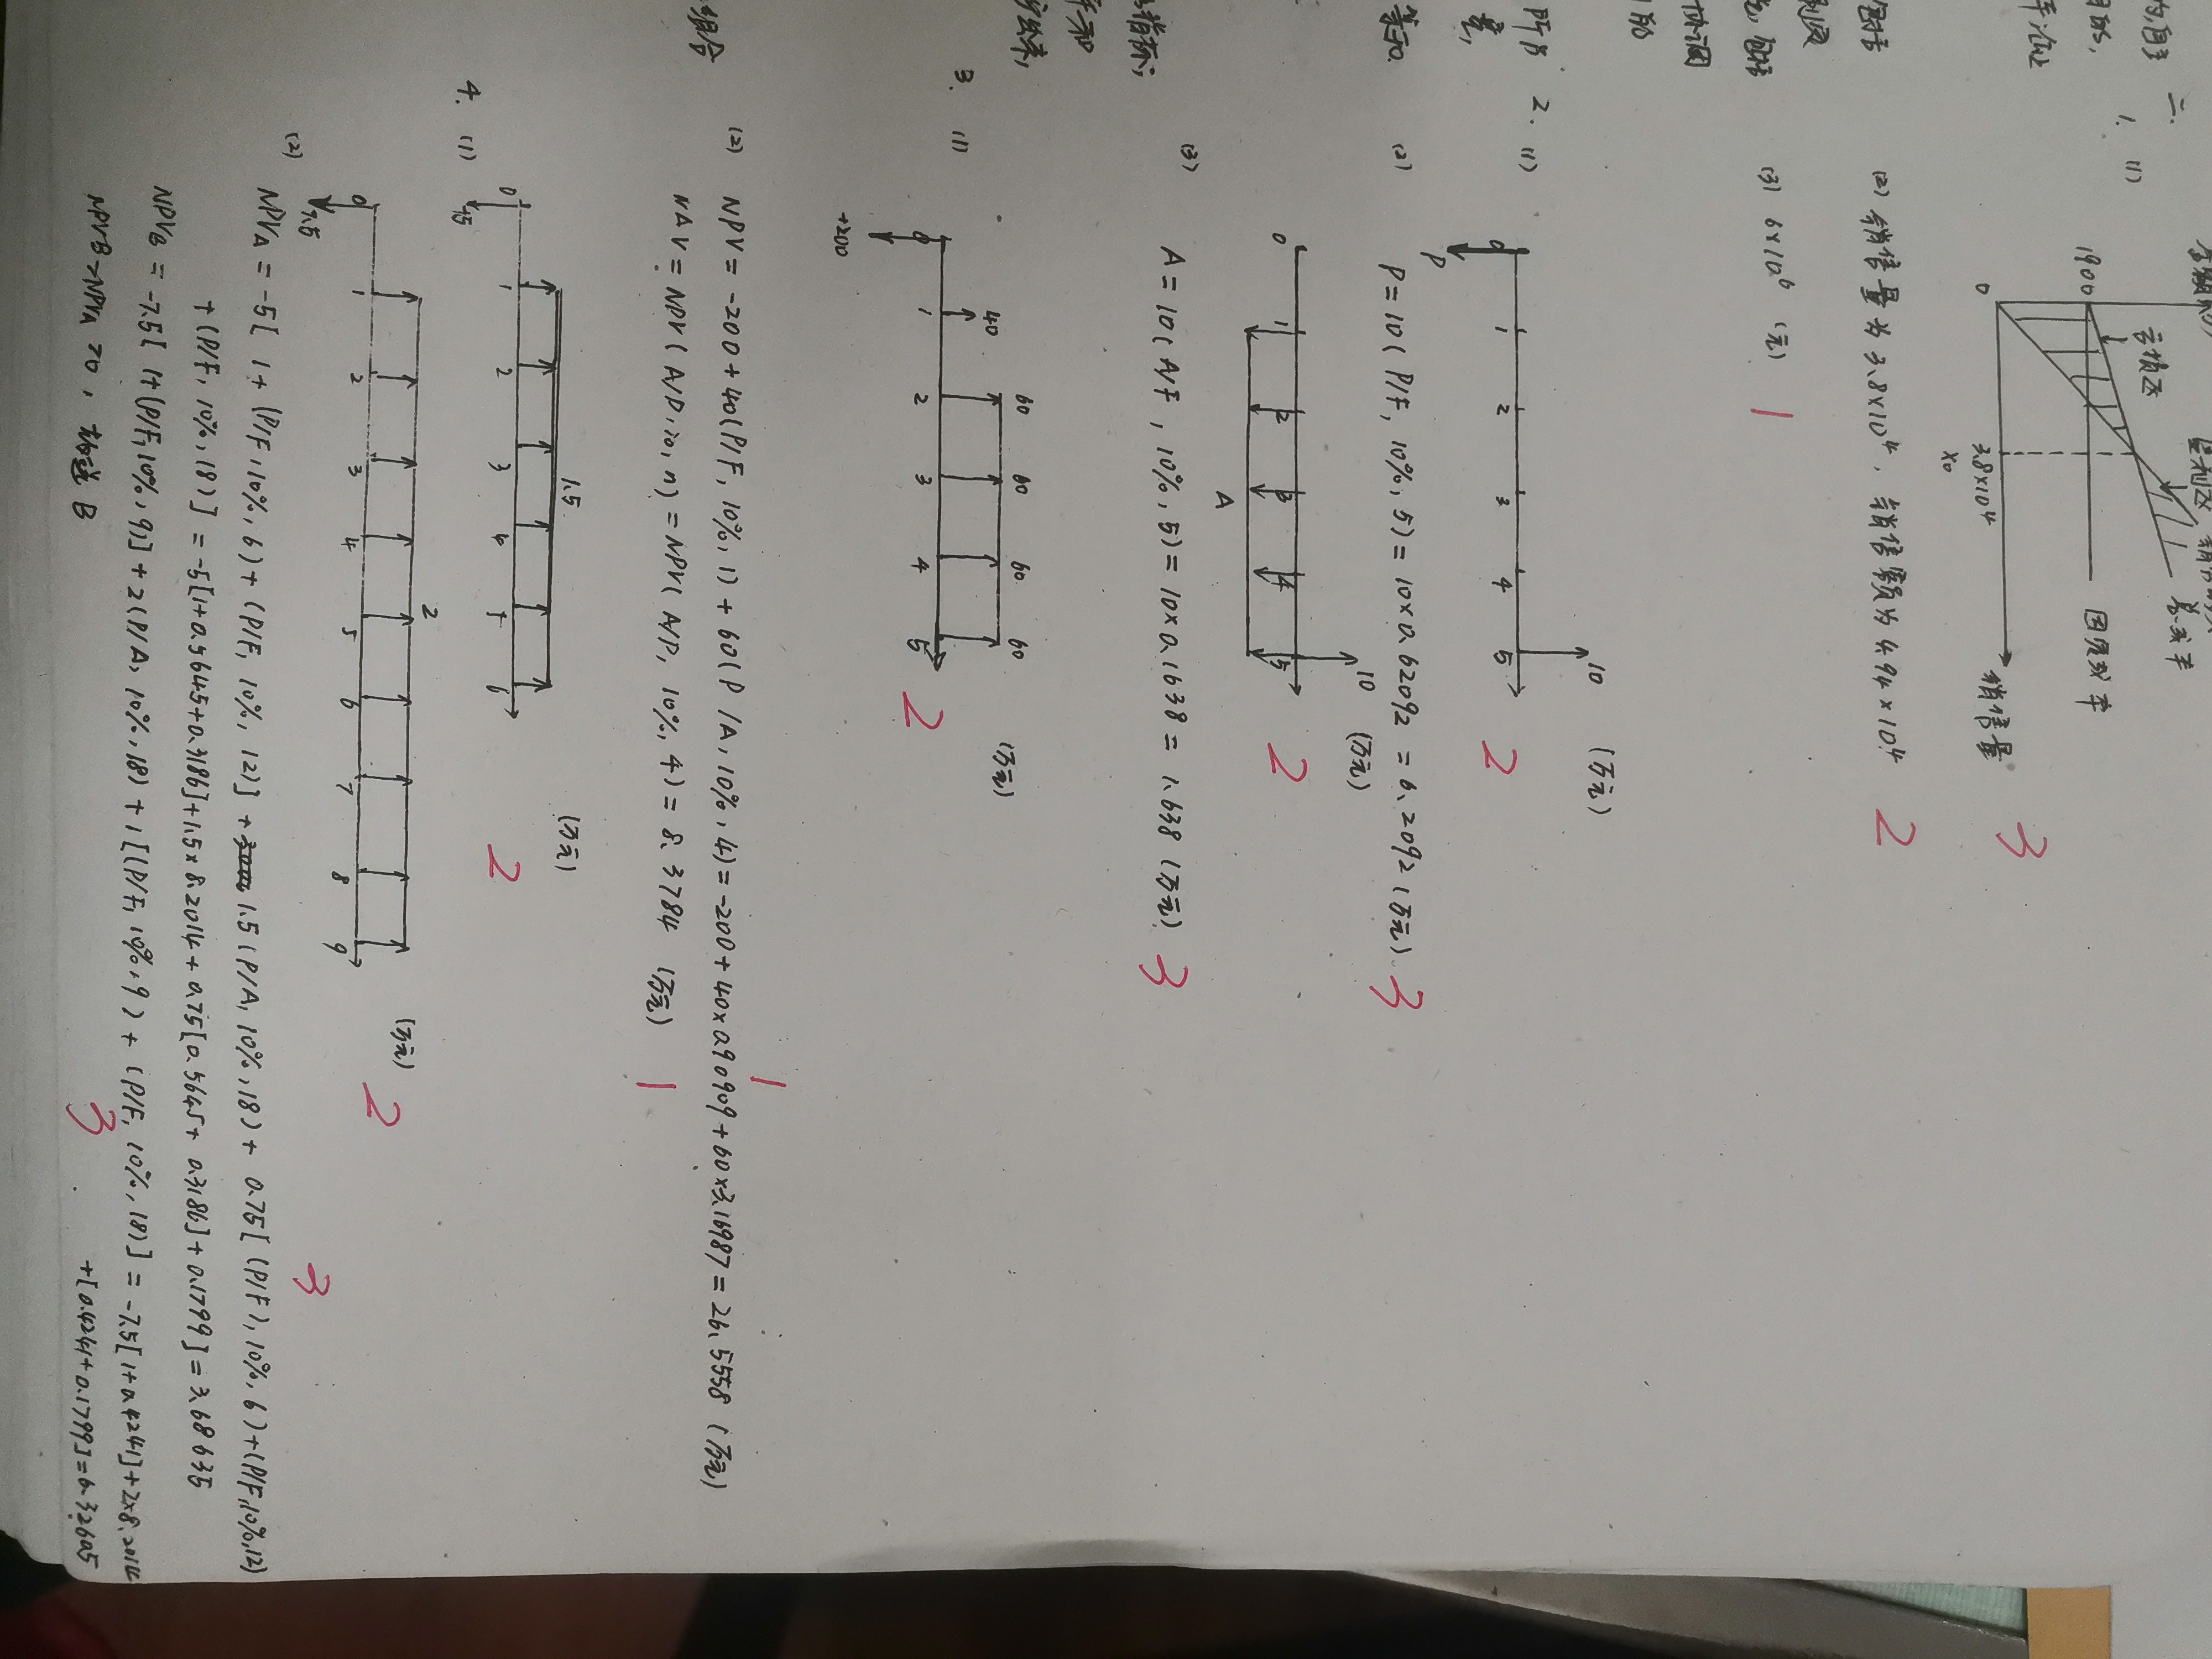 二.
1. (1)
亏损区
盈利区
总成本
1900
固定成本
0
3.8×10⁴
销售量
x₀
3
(2) 销售量为3.8×10⁴, 销售额为4.94×10⁴
2
(3) 6×10⁶ (元)
1
2. (1)
10
(万元)
0 1 2 3 4 5
P
2
(2) P=10(P/F, 10%, 5)=10×0.62092=6.2092(万元)
3
10
(万元)
0 1 2 3 4 5
A
2
(3) A=10(A/F, 10%, 5)=10×0.1638=1.638(万元)
3
3. (1)
40 60 60 60 60 (万元)
0 1 2 3 4 5
200
2
1
(2) NPV=-200+40(P/F, 10%, 1)+60(P/A, 10%, 4)=-200+40×0.90909+60×3.16987=26.5558 (万元)
NAV=NPV(A/P, i0, n)=NPV(A/P, 10%, 4)=8.3784 (万元)
1
4. (1)
1.5
(万元)
0 1 2 3 4 5 6
2
2
(万元)
0 1 2 3 4 5 6 7 8 9
7.5
2
3
(2) NPVA=-5[1+(P/F, 10%, 6)+(P/F, 10%, 12)]+1.5(P/A, 10%, 18)+0.75[(P/F), 10%, 6)+(P/F, 10%, 12)
+(P/F, 10%, 18)]=-5[1+0.5645+0.3186]+1.5×8.2014+0.75[0.5645+0.3186]+0.1799]=3.68635
NPVB=-7.5[1+(P/F, 10%, 9)]+2(P/A, 10%, 18)+1[(P/F, 10%, 9)+(P/F, 10%, 18)]=-7.5[1+0.4241]+2×8.2014
+[0.4241+0.1799]=6.32605
NPVB>NPVA>0, 故选B
3
的,
包括
包括
协调
等于0.
指标;
组合